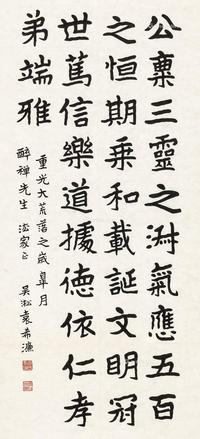 公稟三靈之澍氣應五百
之恒期乘和載誕文明冠
世篤信樂道據德依仁孝
弟端雅
重光大荒落之歲皋月
醉禪先生 法家正 吳淞袁希濂